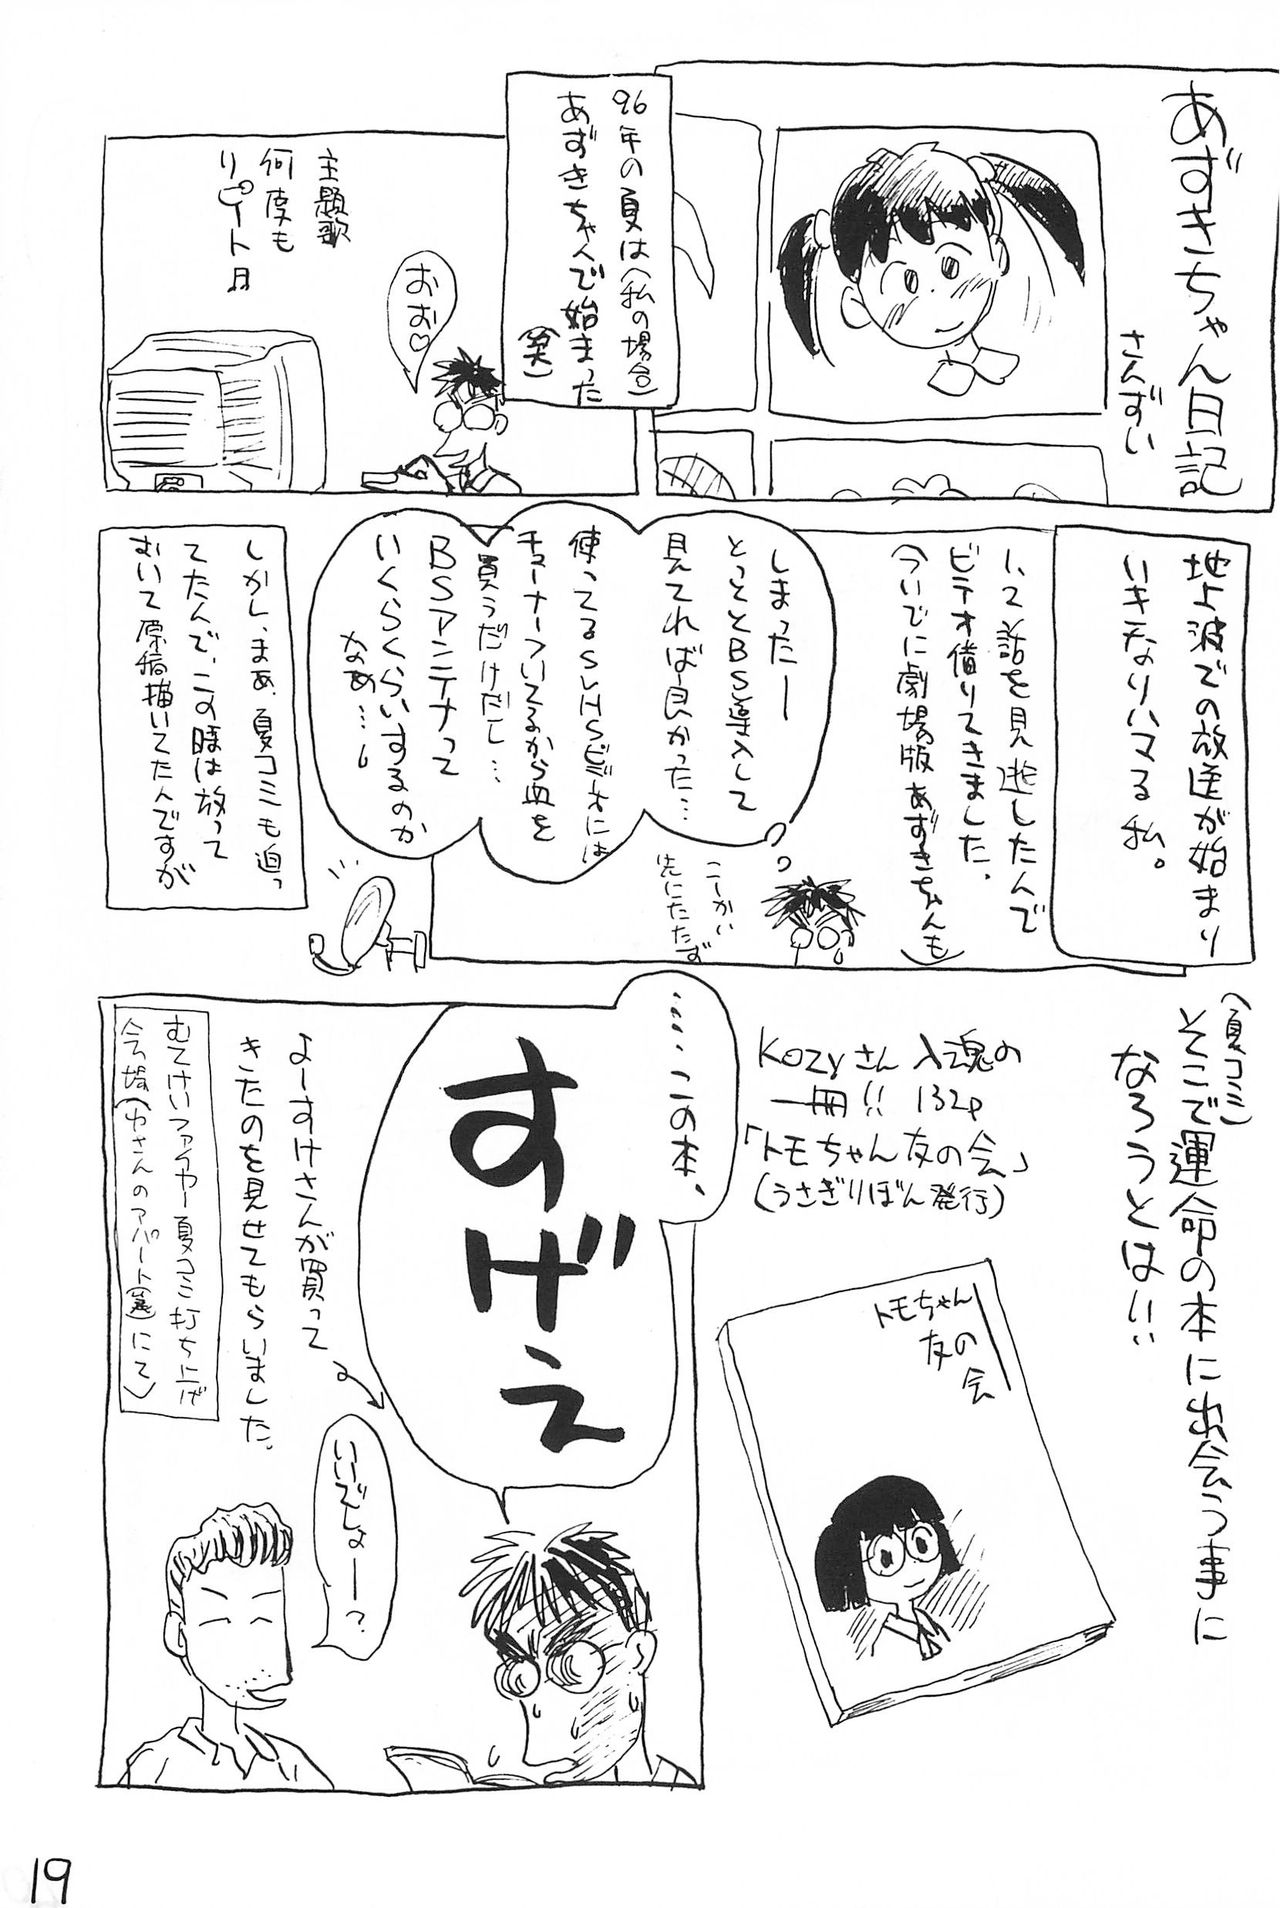 あずきちゃん日記
さんずい
96年の夏は(私の場合)
あずきちゃんで始まった
(笑)
おお♡
主題歌
何度も
リピート中
地上波での放送が始まり
いキナリハマる私。
1、2話を見逃したんで
ビデオ借りてきました。
(ついでに劇場版あずきちゃんも)
しまったー
とっととBS導入して
見てれば良かった…
使ってるSVHSビデオには
チューナーついてるから皿を
買うだけだし…
BSアンテナって
いくらくらいするのか
なぁ…。
こーかい
先にたたず
しかし、まぁ、夏コミも迫っ
てたんで、この時は放って
おいて原稿描いてたんですが
(夏コミ)
そこで運命の本に出会う事に
なろうとは!!
Kozyさん 入魂の
一冊!! 132p
「トモちゃん友の会」
(うさぎりぼん発行)
トモちゃん
友の会
……この本、
すげぇ
よーすけさんが買って
きたのを見せてもらいました。
むてけいファイヤー夏コミ打ち上げ
会場(Yさんのアパート(笑)にて)
いいでしょー?
19